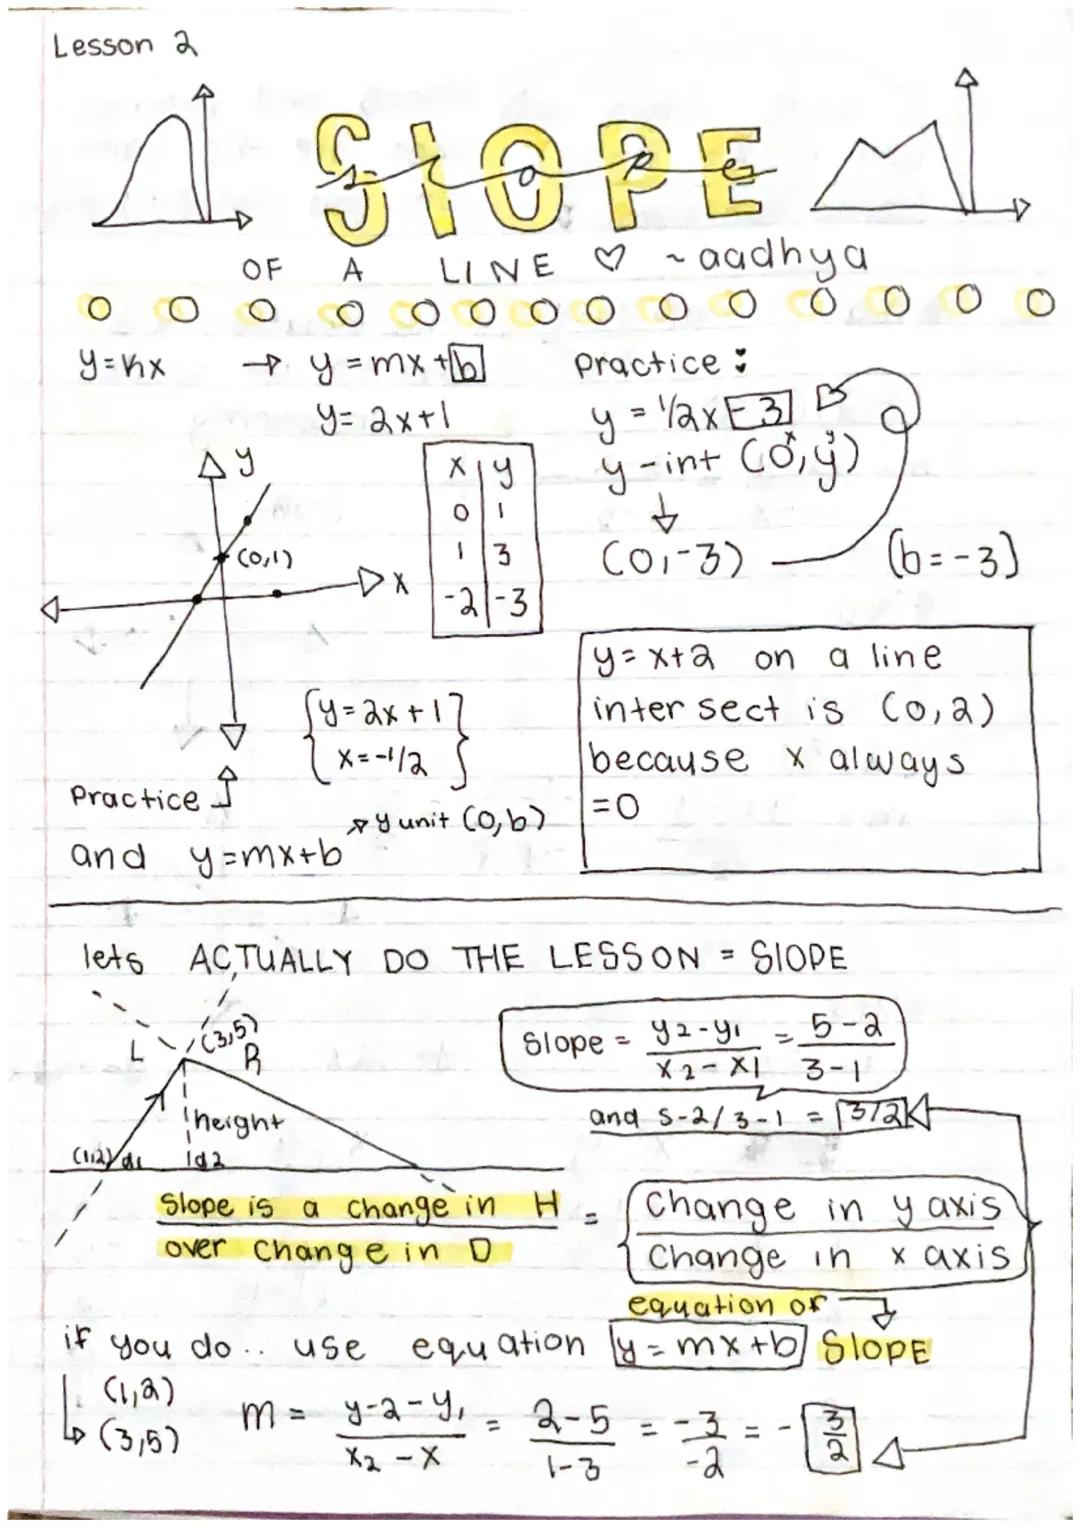 Lesson 2
SlOPE
slopes
OF A LINE ♡ ~aadhya
y=kx → y=mx+b
y=2x+1
x y
0 1
1 3
-2 -3
y
(0,1)
x
{y=2x+1
x=-1/2}
Practice
and y=mx+b
y unit (0,b)
practice:
y = 1/2x - 3
y-int (0, y)
x y
(0,-3) (b=-3)
y=x+2 on a line
inter sect is (0,2)
because x always
=0
lets ACTUALLY DO THE LESSON = SlOPE
L (3,5) R
height
(1,2) d1 d2
Slope = y2-y1/x2-x1 = 5-2/3-1
and 5-2/3-1 = 3/2
Slope is a change in H
over change in D
= Change in y axis
Change in x axis
equation of
if you do.. use equation y=mx+b SlOPE
(1,2)
(3,5)
m = y-2-y1/x2-x = 2-5/1-3 = -3/-2 = - 3/2